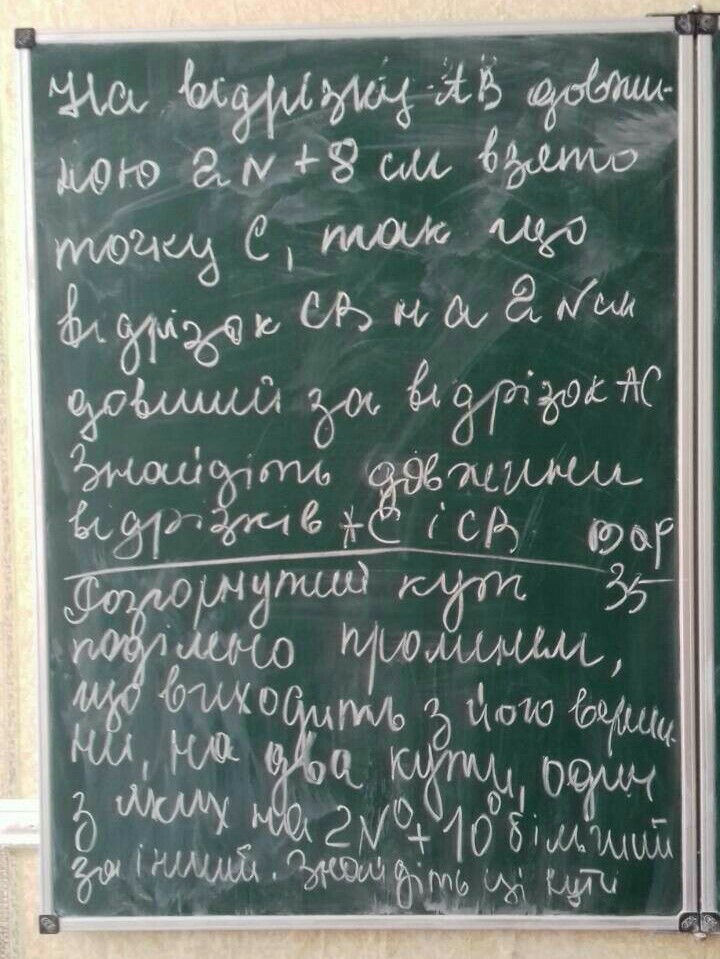 На відрізку АВ довжи-
ною 2N + 8 см взято
точку С, так що
відрізок СВ на 2N см
довший за відрізок АС
Знайдіть довжини
відрізків АС і СВ вар
35
Розгорнутий кут
поділено променем,
що виходить з його верши-
ни, на два кути, один
з яких на 2N° + 10° більший
за інший. Знайдіть ці кути